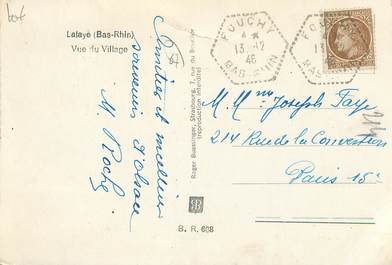 bof
Lalaye (Bas-Rhin)
Vue du Village
Amitiés et meilleurs
souvenirs d'alsace
M. Roche
Roger Buessinger, Strasbourg, 7, rue du
(reproduction interdite)
B. R. 608
FOUCHY
4 *
13-12
46
BAS-RHIN
FO
13
BAS
M. Mme Joseph Faye
214 Rue de la Convention
Paris 15e